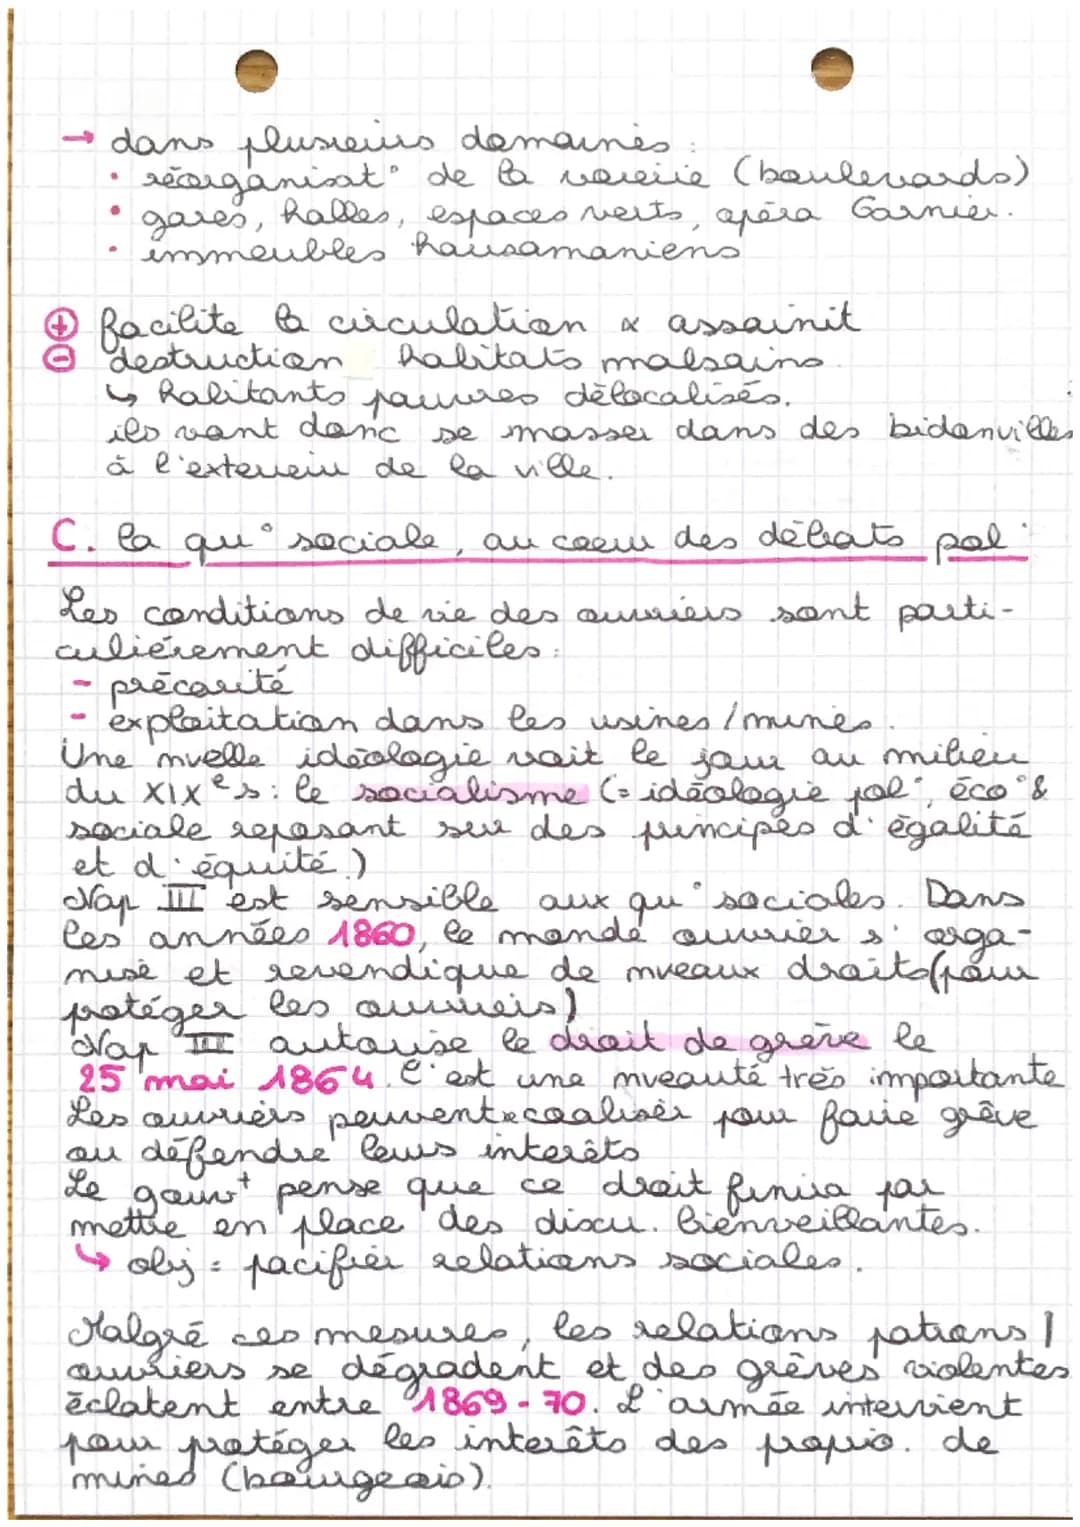 → dans plusieurs domaines :
• réorganisat° de la voierie (boulevards)
• gares, halles, espaces verts, opéra Garnier.
• immeubles hausamaniens
⊕ facilite la circulation & assainit
⊖ destruction habitats malsains
↳ habitants pauvres délocalisés.
ils vont donc se masser dans des bidonvilles
à l'exterieur de la ville.
C. la qu° sociale, au coeur des débats pol°
Les conditions de vie des ouvriers sont parti-
culiérement difficiles :
- précarité
- exploitation dans les usines / mines.
Une nvelle idéologie voit le jour au milieu
du XIXe s : le socialisme (= idéologie pol°, éco° &
sociale reposant sur des principes d'égalité
et d'équité.)
Nap III est sensible aux qu° sociales. Dans
les années 1860, le monde ouvrier s'orga-
nise et revendique de nveaux droits (pour
protéger les ouvriers)
Nap III autorise le droit de grève le
25 mai 1864. C'est une nveauté très importante
Les ouvriers peuvent se coaliser pour faire grêve
ou défendre leurs interêts
Le gouvt pense que ce droit finira par
mettre en place des discu. bienveillantes.
↳ obj = pacifier relations sociales.
Malgré ces mesures, les relations patrons /
ouvriers se dégradent et des grèves violentes
éclatent entre 1869-70. L'armée intervient
pour protéger les interêts des proprio. de
mines (bourgeois).